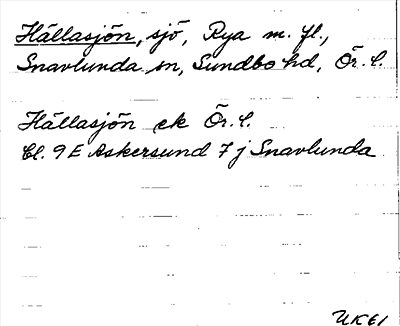 Hällasjön, sjö, Rya m. fl.,
Snavlunda sn, Sundbo hd, Ör. l.
Hällasjön ek Ör. l.
Bl. 9 E Askersund 7 j Snavlunda
UK 61